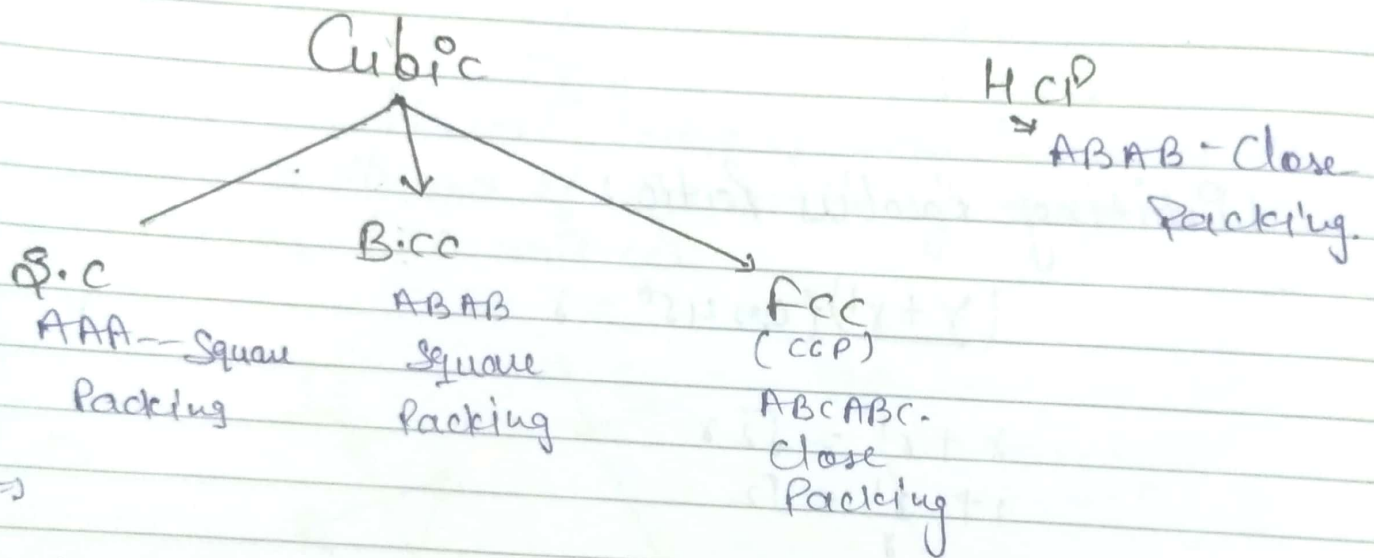 Cubic
HCP
ABAB - Close
Packing.
S.C
AAA -- Square
Packing
B.CC
ABAB
Square
Packing
FCC
(CCP)
ABCABC.
Close
Packing
⇒